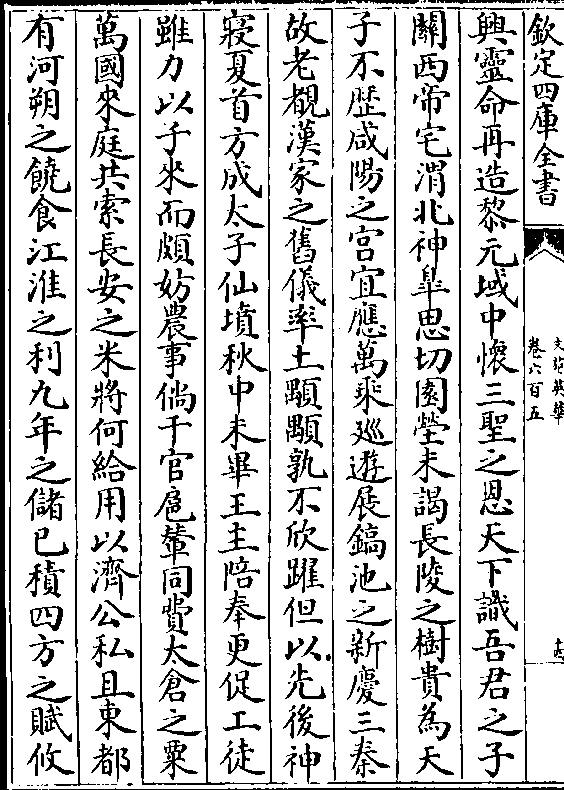 欽定四庫全書
文苑英華
卷六百五
興靈命再造黎元域中懷三聖之恩天下識吾君之子
關西帝宅渭北神臯思切園塋未謁長陵之樹貴為天
子不歴咸陽之宫宜應萬乘廵遊展鎬池之新慶三秦
故老覩漢家之舊儀率土顒顒孰不欣躍但以先後神
寢夏首方成太子仙墳秋中未畢王主陪奉更促工徒
雖力以子來而頗妨農事倘千官扈輦同費太倉之粟
萬國來庭共索長安之米將何給用以濟公私且東都
有河朔之饒食江淮之利九年之儲已積四方之賦攸